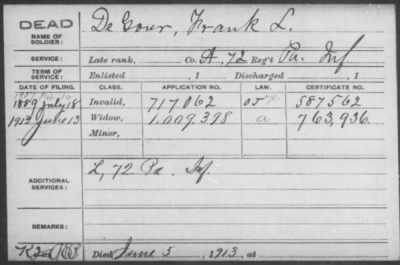 DEAD
NAME OF SOLDIER:
De Gour, Frank L.
SERVICE:
Late rank, Co. A, 72 Reg't Pa. Inf
TERM OF SERVICE:
Enlisted , 1 Discharged , 1
DATE OF FILING. CLASS. APPLICATION NO. LAW. CERTIFICATE NO.
1889 July 18 Invalid, 717062 587562
1913 June 13 Widow, 1.009.398 a 763,936.
Minor,
ADDITIONAL SERVICES:
L, 72 Pa. Inf.
REMARKS:
Died June 5, 1913, at